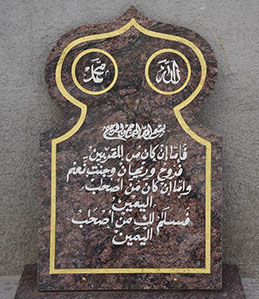 الله
محمد
بسم الله الرحمن الرحيم
فَأَمَّا إِن كَانَ مِنَ المُقَرَّبِينَ
فَرَوحٌ وَرَيحَانٌ وَجَنَّتُ نَعِيمٍ
وَأَمَّا إِن كَانَ مِنْ أَصْحَٰبِ
اليَمِينِ
فَسَلَٰمٌ لَكَ مِنْ أَصْحَٰبِ
اليَمِينِ